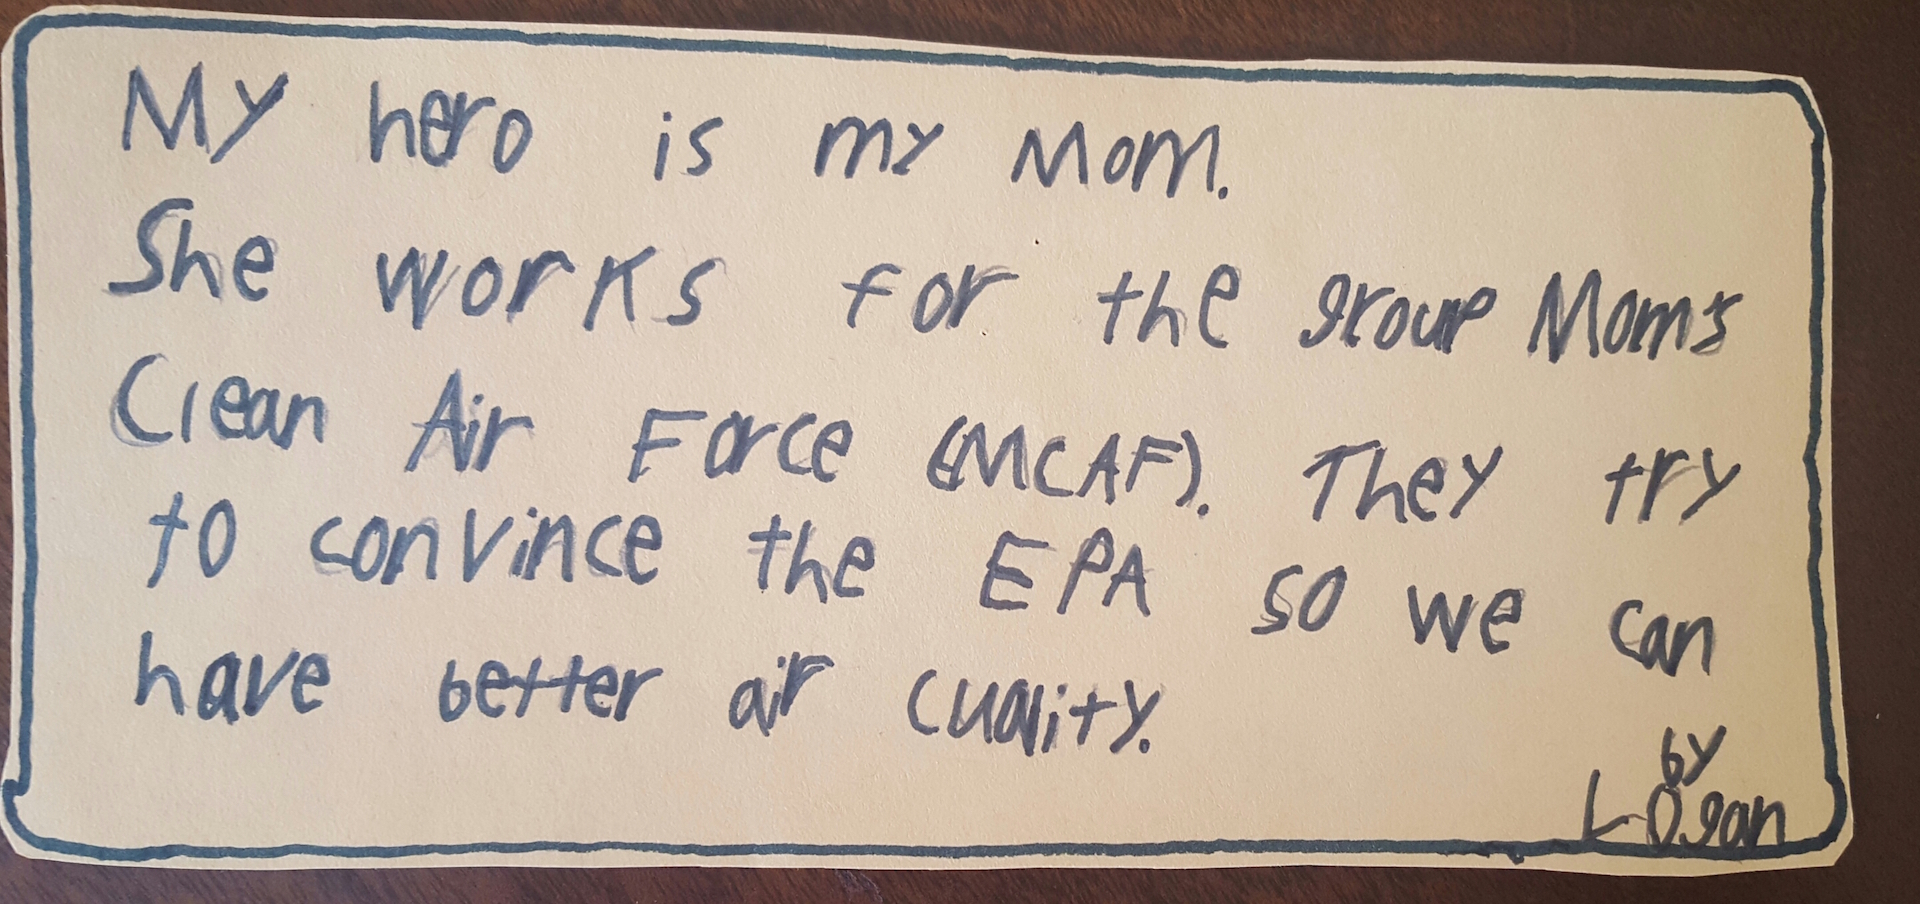 My hero is my Mom.
She works for the group Moms
Clean Air Force (MCAF). They try
to convince the EPA so we can
have better air cuality.
by
Logan